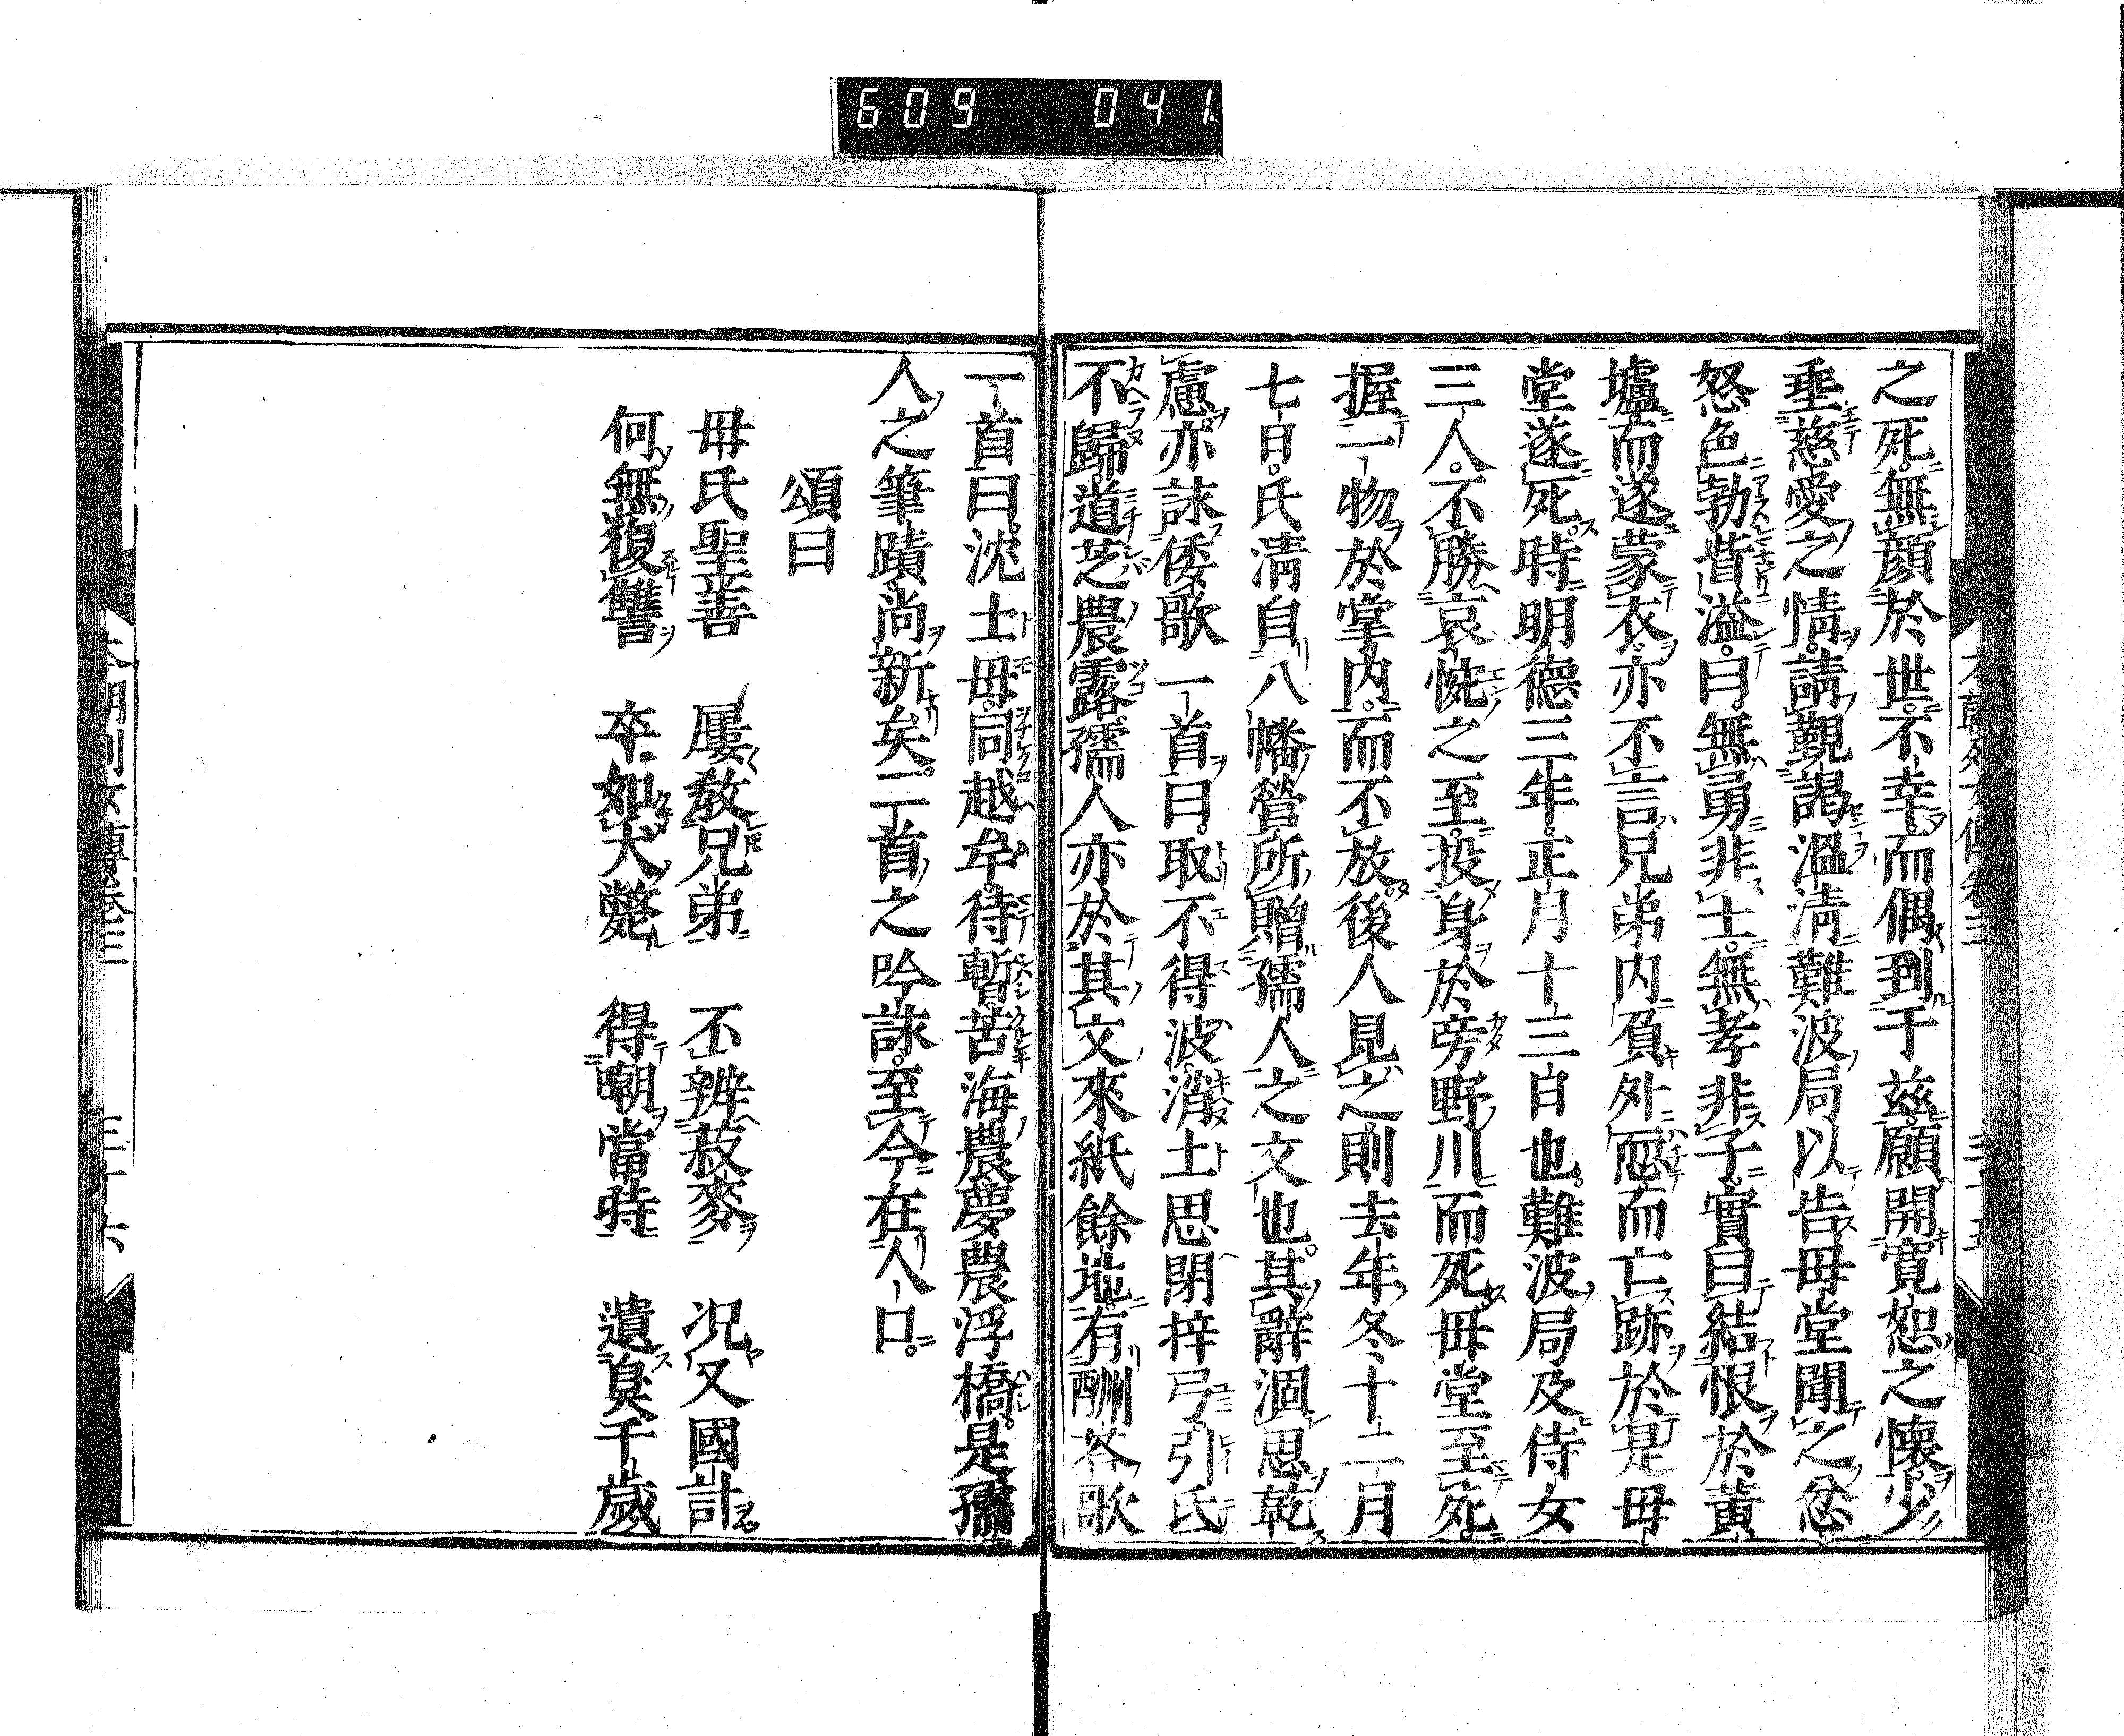 609 041
之死無顔於世不幸而偶到于玆願開寛恕之懐少
垂慈愛之情請覲謁溫淸難波局以告母堂聞之忿
怒色勃背溢曰無勇非士無孝非子實曰結恨於黃
壚而遂蒙衣亦不言兄弟内負外恧而亡跡於是母
堂遂死時明德三年正月十三日也難波局及侍女
三人不勝哀恠之至投身於旁野川而死母堂至死
握一物於掌内而不放後人見之則去年冬十二月
七日氏淸自八幡營所贈孺人之文也其辭涸思乾
慮亦詠倭歌一首曰取不得波消土思閉梓弓引氏
不歸道芝農露孺人亦於其文來紙餘地有酬荅歌
一首曰沈士母同越牟待暫苦海農夢農浮橋是孺
人之筆蹟尚新矣二首之吟詠至今在人口
頌曰
毋氏聖善 屢敎兄弟 不辨菽麥 况又國計
何無復讐 卒如犬斃 得嘲當時 遺臭千歲
本朝列女傳卷三 三十六